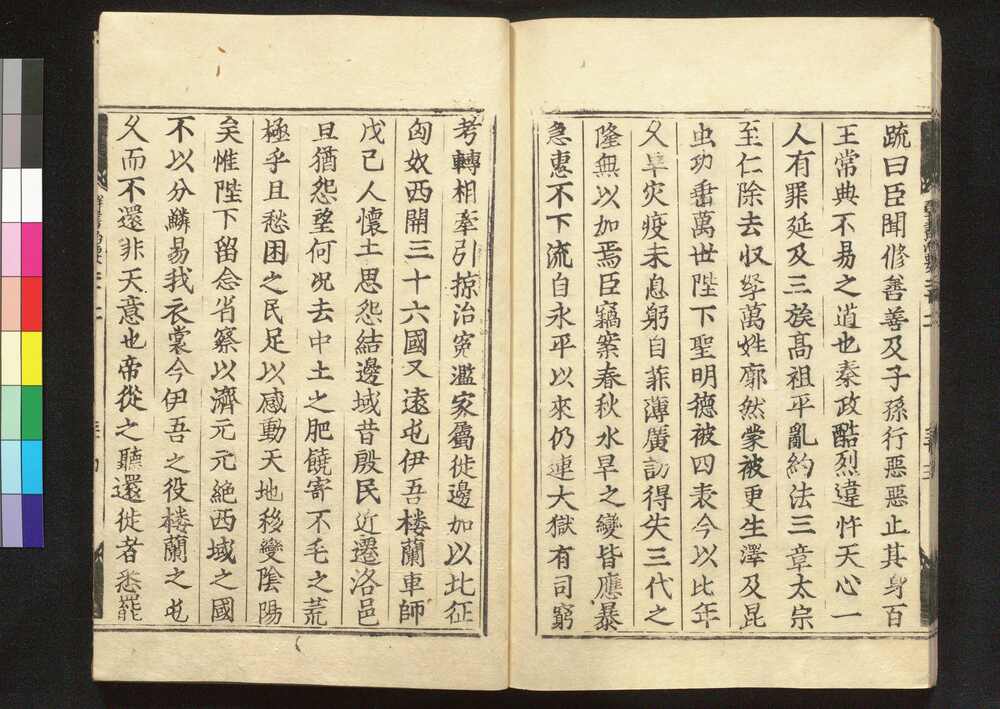 疏曰臣聞修善善及子孫行惡惡止其身百
王常典不易之道也秦政酷烈違忤天心一
人有罪延及三族高祖平亂約法三章太宗
至仁除去収孥萬姓廓然蒙被更生澤及昆
虫功垂萬世陛下聖明德被四表今以比年
久旱灾疫未息躬自菲薄廣訪得失三代之
隆無以加焉臣竊案春秋水旱之變皆應暴
急惠不下流自永平以來仍連大獄有司窮
考轉相牽引掠治宛濫家屬徙邊加以比征
匈奴西開三十六國又遠屯伊吾楼蘭車師
戊己人懷土思怨結邊域昔殷民近遷洛邑
旦猶怨望何况去中土之肥饒寄不毛之荒
極乎且愁困之民足以感動天地移變陰陽
矣惟陛下留念省察以濟元元絶西域之國
不以介鱗易我衣裳今伊吾之役楼蘭之屯
久而不還非天意也帝從之聽還徙者悉罷